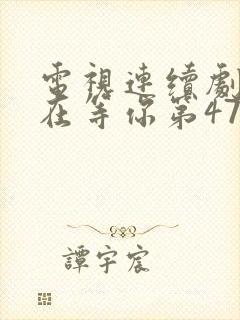 電視連續劇
在等你第47
譚宇宸